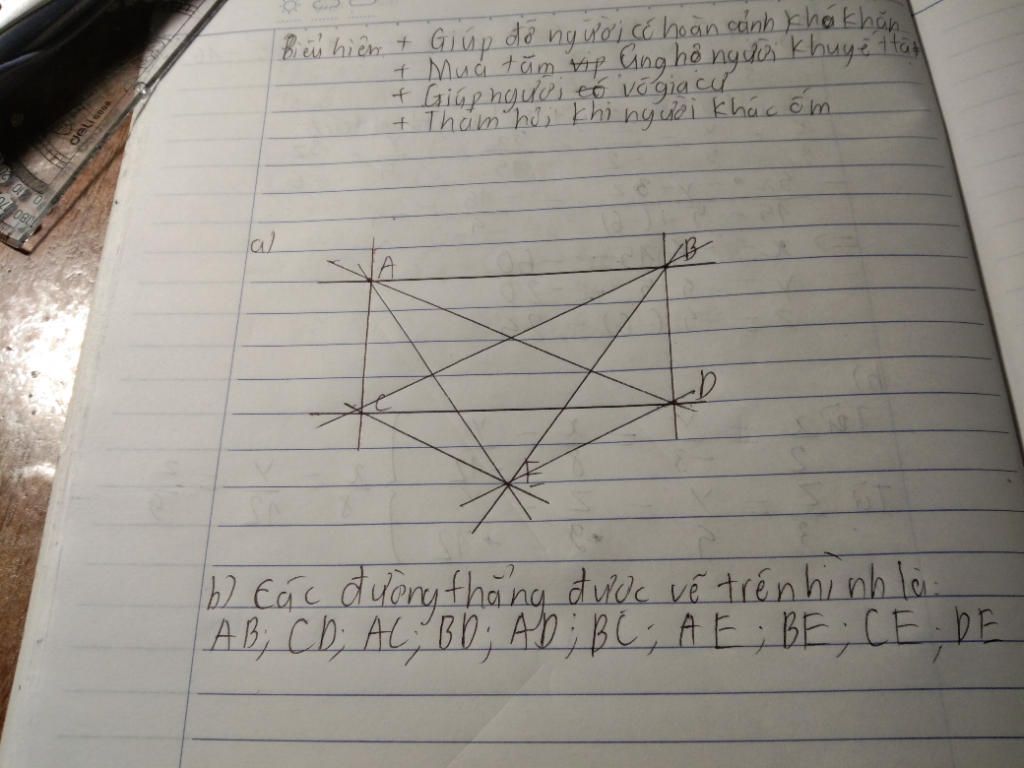 Biểu hiện + Giúp đỡ người có hoàn cảnh khó khăn
+ Mua tăm ủng hộ người khuyết tật
+ Giúp người vô gia cư
+ Thăm hỏi khi người khác ốm
deli
a)
A B
C D
E
b) Các đường thẳng được vẽ trên hình là:
AB; CD; AC; BD; AD; BC; AE; BE; CE; DE